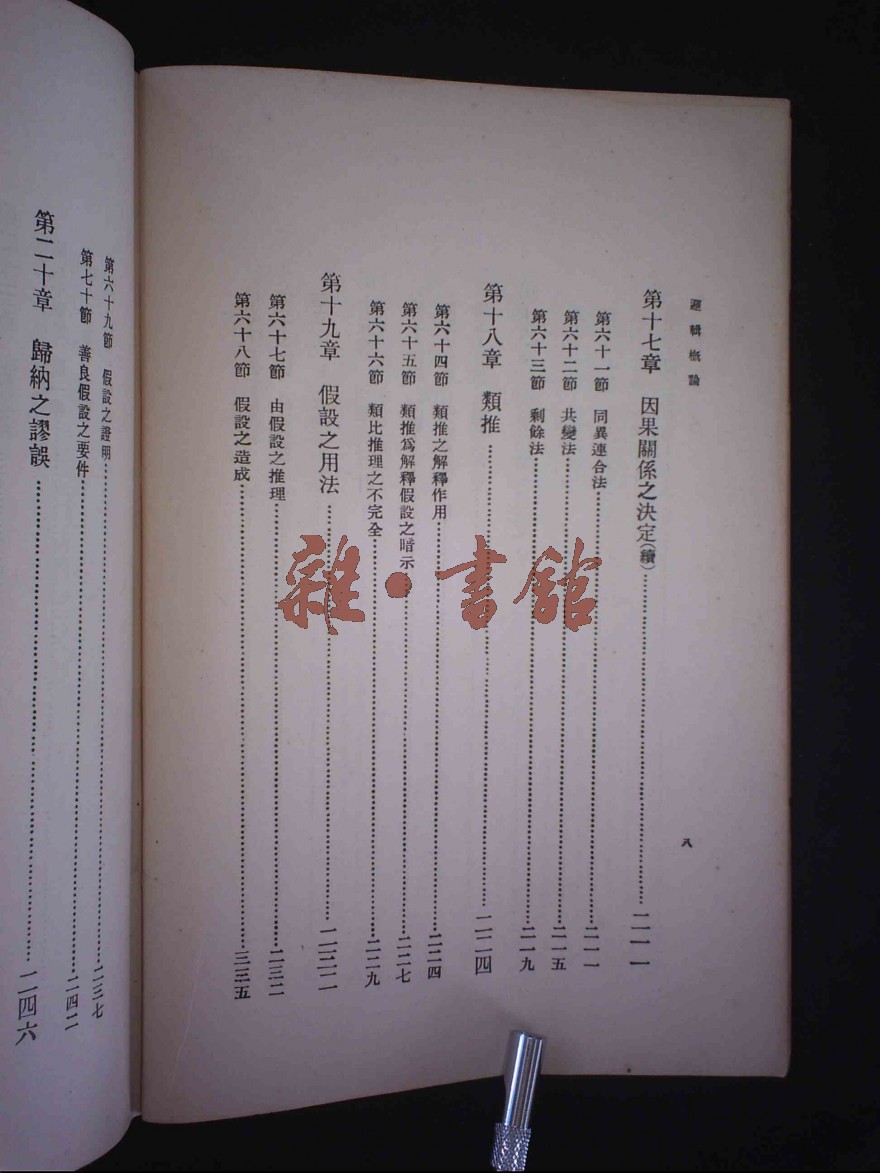 邏輯概論
八
第十七章 因果關係之決定(續)…………二一一
第六十一節 同異連合法…………二一一
第六十二節 共變法…………二一五
第六十三節 剩餘法…………二一九
第十八章 類推…………二二四
第六十四節 類推之解釋作用…………二二四
第六十五節 類推爲解釋假設之暗示…………二二七
第六十六節 類比推理之不完全…………二二九
第十九章 假設之用法…………二三二
第六十七節 由假設之推理…………二三二
第六十八節 假設之造成…………三三五
第六十九節 假設之證明…………二三七
第七十節 善良假設之要件…………二四二
第二十章 歸納之謬誤…………二四六
雜·書館